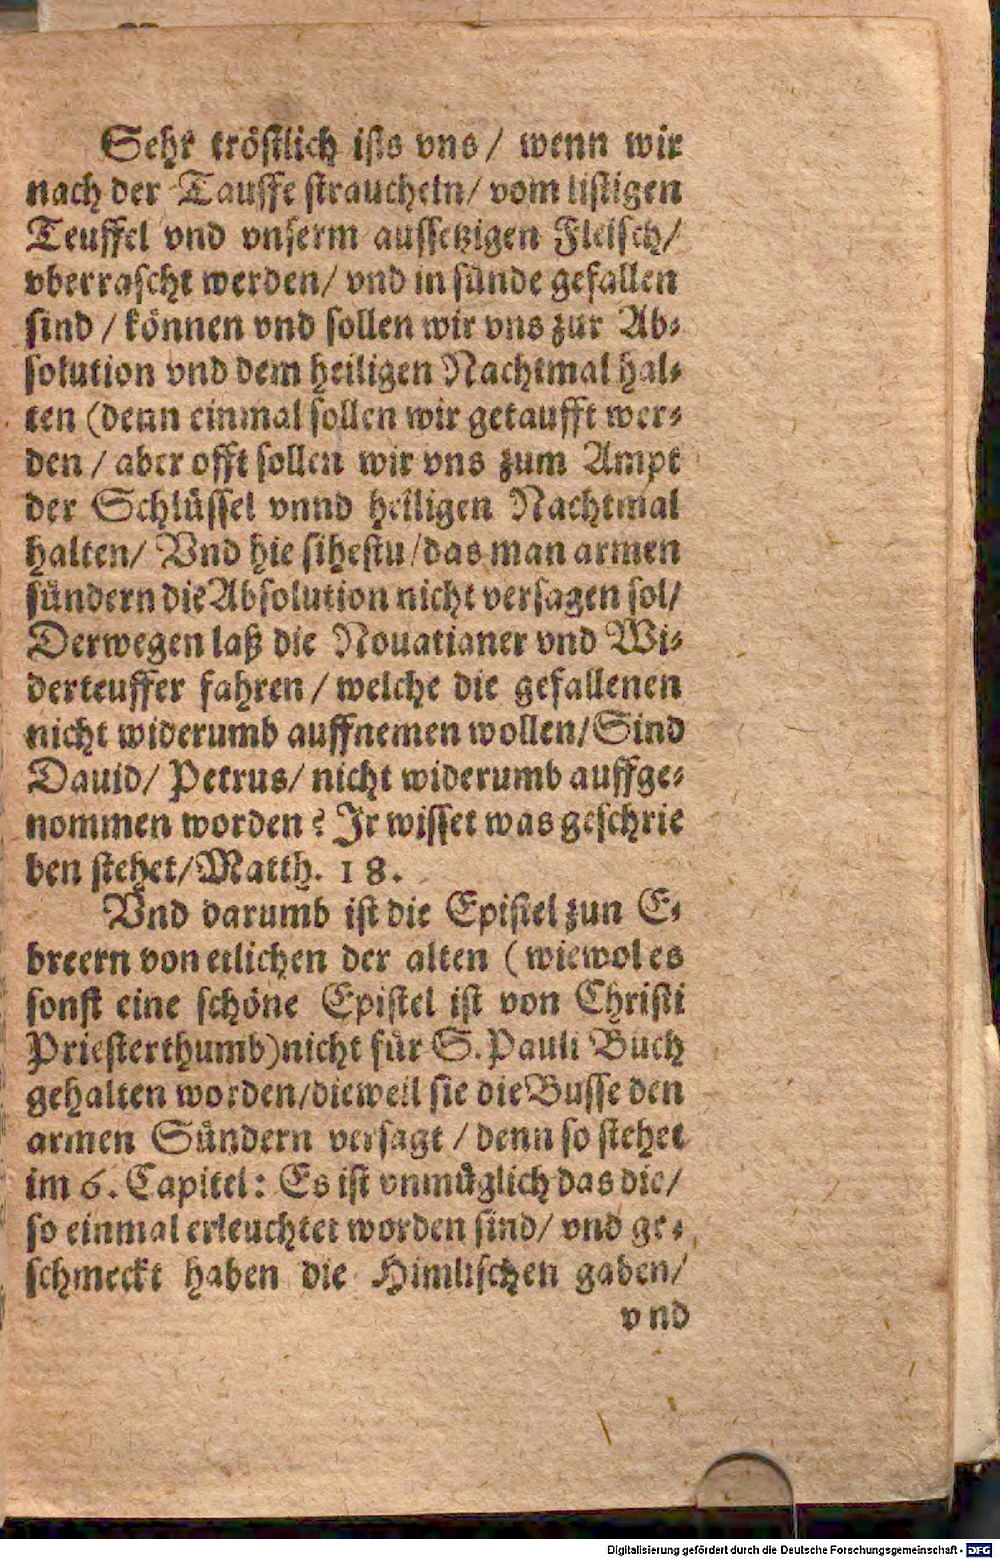 Sehr tröstlich ists vns / wenn wir
nach der Tauffe straucheln / vom listigen
Teuffel vnd vnserm aussetzigen Fleisch /
vberrascht werden / vnd in sünde gefallen
sind / können vnd sollen wir vns zur Ab-
solution vnd dem heiligen Nachtmal hal-
ten (denn einmal sollen wir getaufft wer-
den / aber offt sollen wir vns zum Ampt
der Schlüssel vnnd heiligen Nachtmal
halten / Vnd hie sihestu / das man armen
sündern die Absolution nicht versagen sol /
Derwegen laß die Nouatianer vnd Wi-
derteuffer fahren / welche die gefallenen
nicht widerumb auffnemen wollen / Sind
Dauid / Petrus / nicht widerumb auffge-
nommen worden? Jr wisset was geschrie
ben stehet / Matth. 18.
Vnd darumb ist die Epistel zun E-
breern von etlichen der alten (wiewol es
sonst eine schöne Epistel ist von Christi
Priesterthumb) nicht für S. Pauli Buch
gehalten worden / dieweil sie die Busse den
armen Sündern versagt / denn so stehet
im 6. Capitel: Es ist vnmüglich das die /
so einmal erleuchtet worden sind / vnd ge-
schmeckt haben die Himlischen gaben /
vnd
Digitalisierung gefördert durch die Deutsche Forschungsgemeinschaft - DFG